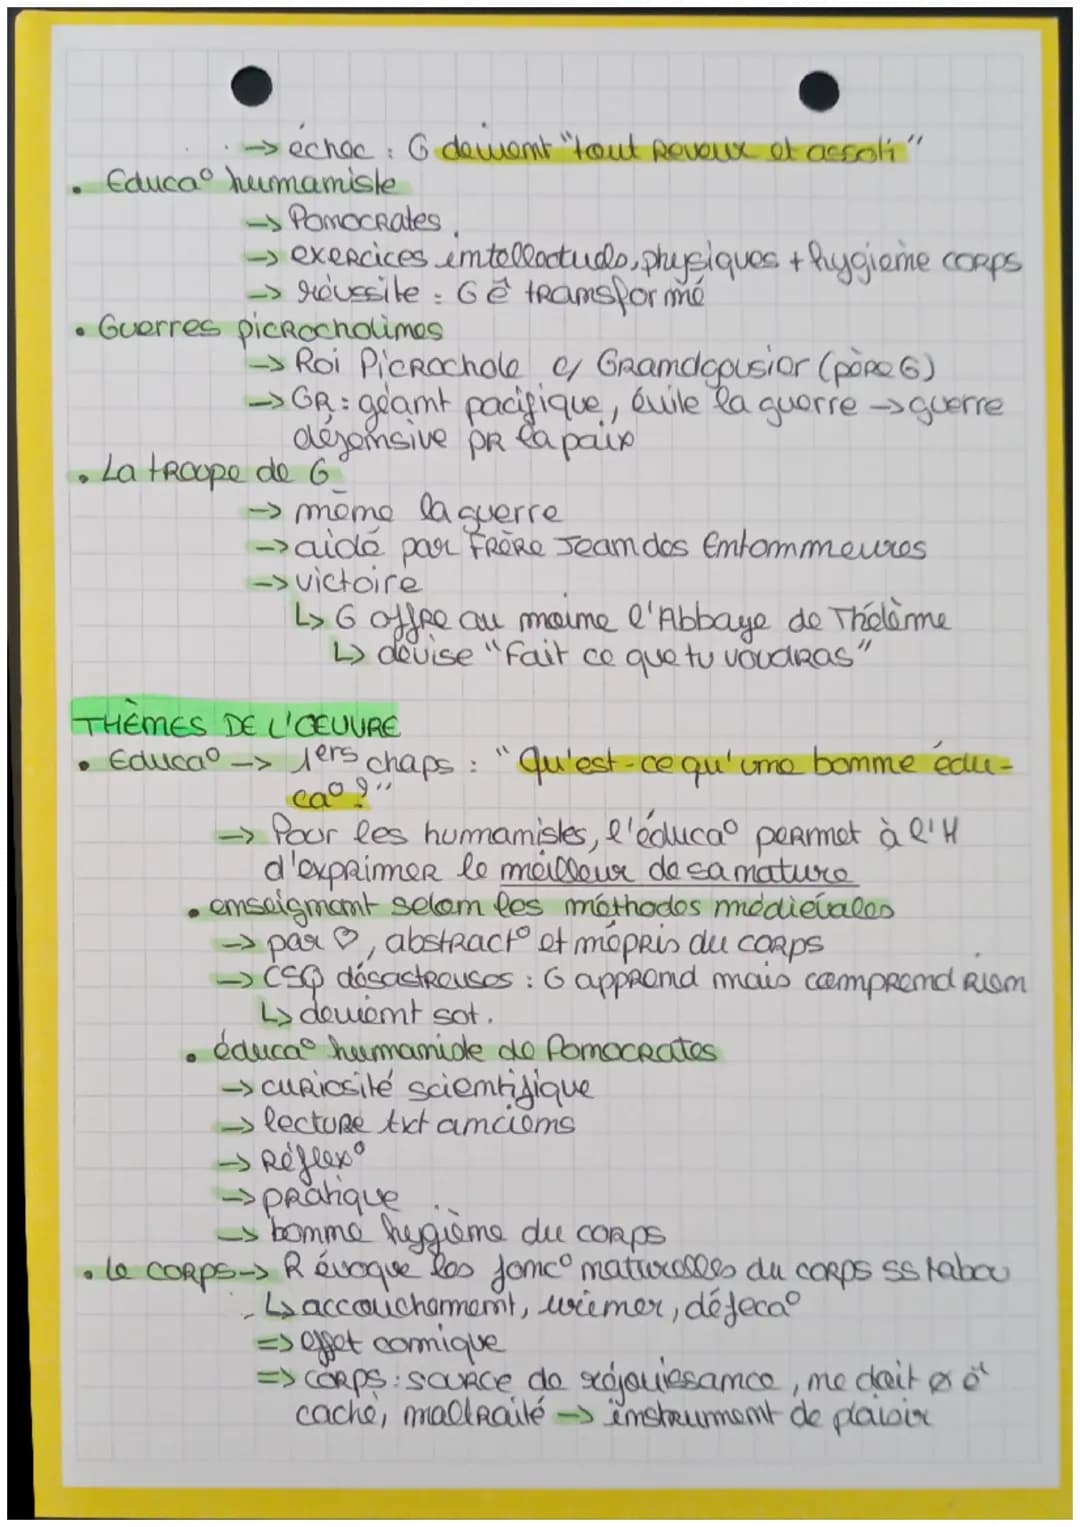 → échec : G devient "tout reveux et assoti"
• Educa° humaniste
→ Ponocrates
→ exercices intellectuels, physiques + hygiène corps
→ réussite : G ê transformé
• Guerres picrocholines
→ Roi Picrochole c/ Grandgousier (père G)
→ GR : géant pacifique, évite la guerre → guerre
défensive pr la paix
• La troupe de G
→ mène la guerre
→ aidé par Frère Jean des Entommeures
→ victoire
↳ G offre au moine l'Abbaye de Thélème
↳ devise "Fait ce que tu voudras"
THÈMES DE L'ŒUVRE
• Educa° → 1ers chaps : "Qu'est-ce qu'une bonne édu-
ca° ?"
→ Pour les humanistes, l'éduca° permet à l'H
d'exprimer le meilleur de sa nature
• enseignmnt selon les méthodes médiévales
→ par ♡, abstract° et mépris du corps
→ CSQ désastreuses : G apprend mais comprend rien
↳ devient sot.
• éduca° humaniste de Ponocrates
→ curiosité scientifique
→ lecture txt anciens
→ Réflex°
→ pratique
→ bonne hygiène du corps
• Le corps → R évoque les fonc° naturelles du corps ss tabou
↳ accouchement, uriner, déféca°
=> effet comique
=> corps : source de réjouissance, ne doit ê
caché, maltraité → instrument de plaisir